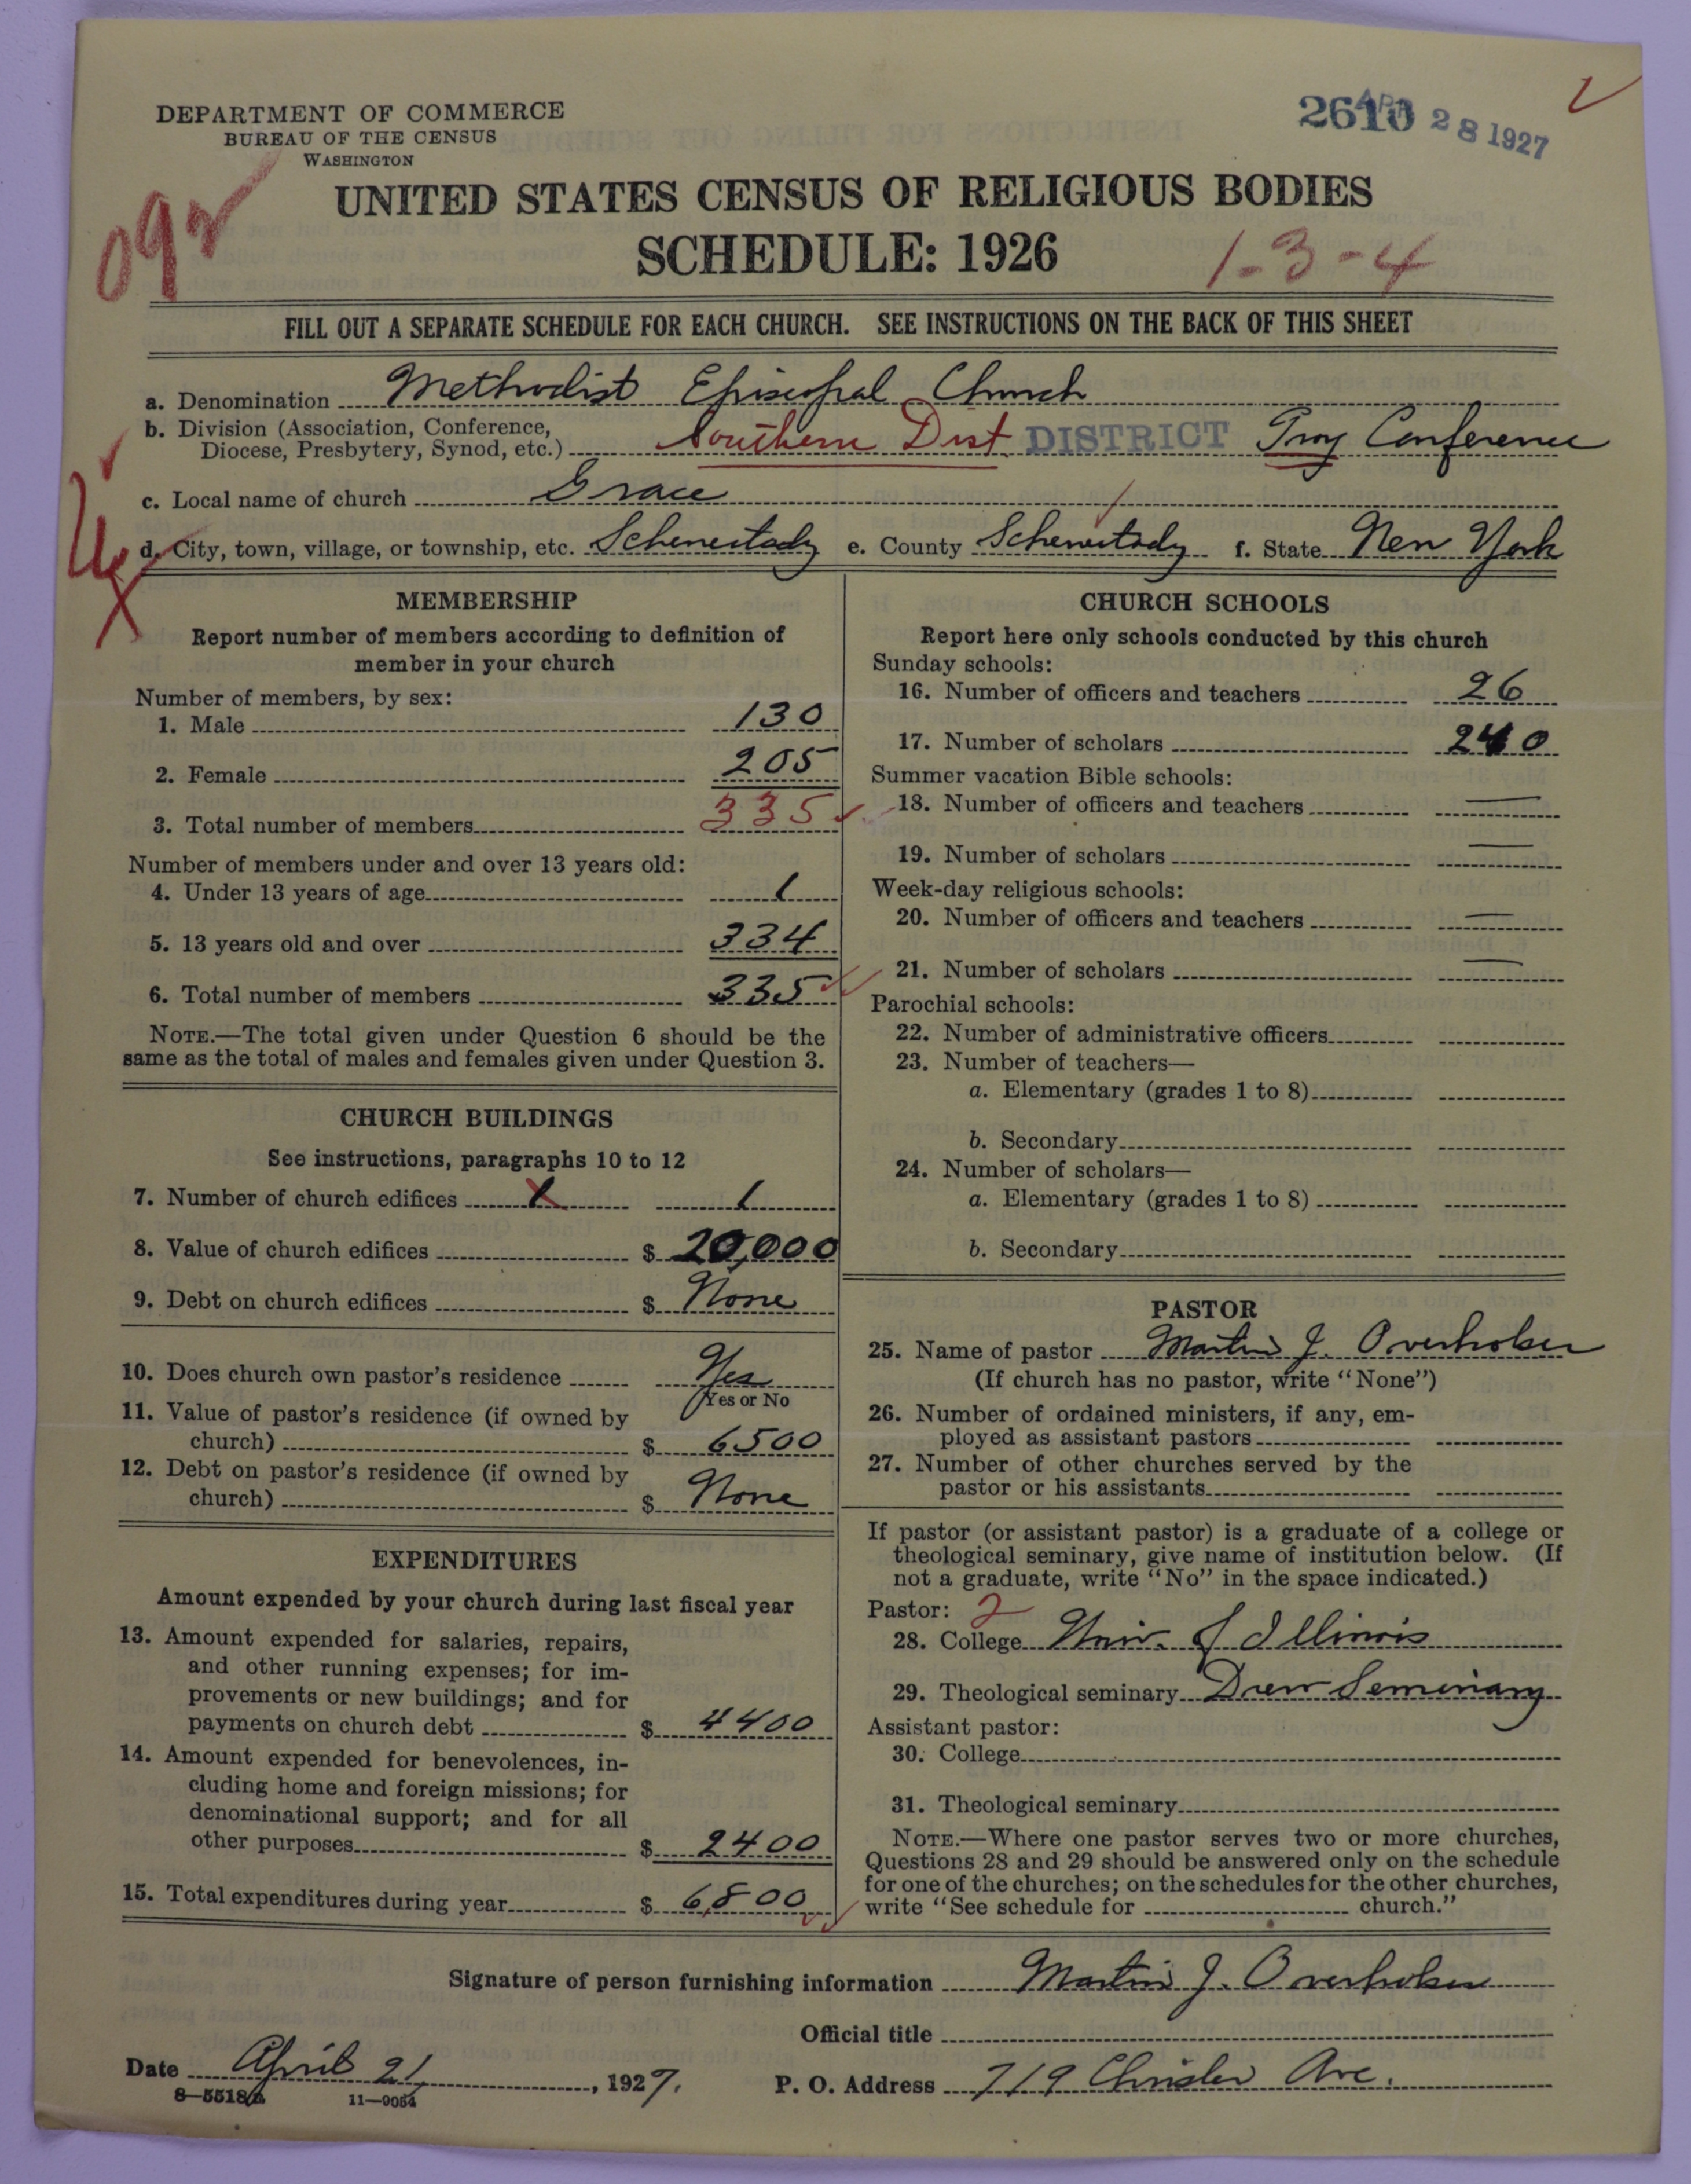 DEPARTMENT OF COMMERCE
BUREAU OF THE CENSUS
WASHINGTON
2610 APR 28 1927
UNITED STATES CENSUS OF RELIGIOUS BODIES
SCHEDULE: 1926
1-3-4
FILL OUT A SEPARATE SCHEDULE FOR EACH CHURCH. SEE INSTRUCTIONS ON THE BACK OF THIS SHEET
a. Denomination Methodist Episcopal Church
b. Division (Association, Conference,
Diocese, Presbytery, Synod, etc.) Southern Dist. DISTRICT Troy Conference
c. Local name of church Grace
d. City, town, village, or township, etc. Schenectady e. County Schenectady f. State New York
MEMBERSHIP
Report number of members according to definition of
member in your church
Number of members, by sex:
1. Male 130
2. Female 205
3. Total number of members 335
Number of members under and over 13 years old:
4. Under 13 years of age 1
5. 13 years old and over 334
6. Total number of members 335
NOTE.—The total given under Question 6 should be the
same as the total of males and females given under Question 3.
CHURCH BUILDINGS
See instructions, paragraphs 10 to 12
7. Number of church edifices 1 1
8. Value of church edifices $ 20,000
9. Debt on church edifices $ None
10. Does church own pastor's residence Yes
Yes or No
11. Value of pastor's residence (if owned by
church) $ 6500
12. Debt on pastor's residence (if owned by
church) $ None
EXPENDITURES
Amount expended by your church during last fiscal year
13. Amount expended for salaries, repairs,
and other running expenses; for im-
provements or new buildings; and for
payments on church debt $ 4400
14. Amount expended for benevolences, in-
cluding home and foreign missions; for
denominational support; and for all
other purposes $ 2400
15. Total expenditures during year $ 6,800
CHURCH SCHOOLS
Report here only schools conducted by this church
Sunday schools:
16. Number of officers and teachers 26
17. Number of scholars 240
Summer vacation Bible schools:
18. Number of officers and teachers —
19. Number of scholars —
Week-day religious schools:
20. Number of officers and teachers —
21. Number of scholars —
Parochial schools:
22. Number of administrative officers
23. Number of teachers—
a. Elementary (grades 1 to 8)
b. Secondary
24. Number of scholars—
a. Elementary (grades 1 to 8)
b. Secondary
PASTOR
25. Name of pastor Martin J. Overholser
(If church has no pastor, write "None")
26. Number of ordained ministers, if any, em-
ployed as assistant pastors
27. Number of other churches served by the
pastor or his assistants
If pastor (or assistant pastor) is a graduate of a college or
theological seminary, give name of institution below. (If
not a graduate, write "No" in the space indicated.)
Pastor: 2
28. College Univ. of Illinois
29. Theological seminary Drew Seminary
Assistant pastor:
30. College
31. Theological seminary
NOTE.—Where one pastor serves two or more churches,
Questions 28 and 29 should be answered only on the schedule
for one of the churches; on the schedules for the other churches,
write "See schedule for church."
Signature of person furnishing information Martin J. Overholser
Official title
Date April 21, 1927.
P. O. Address 719 Chrisler Ave.
8-5518a 11-9054